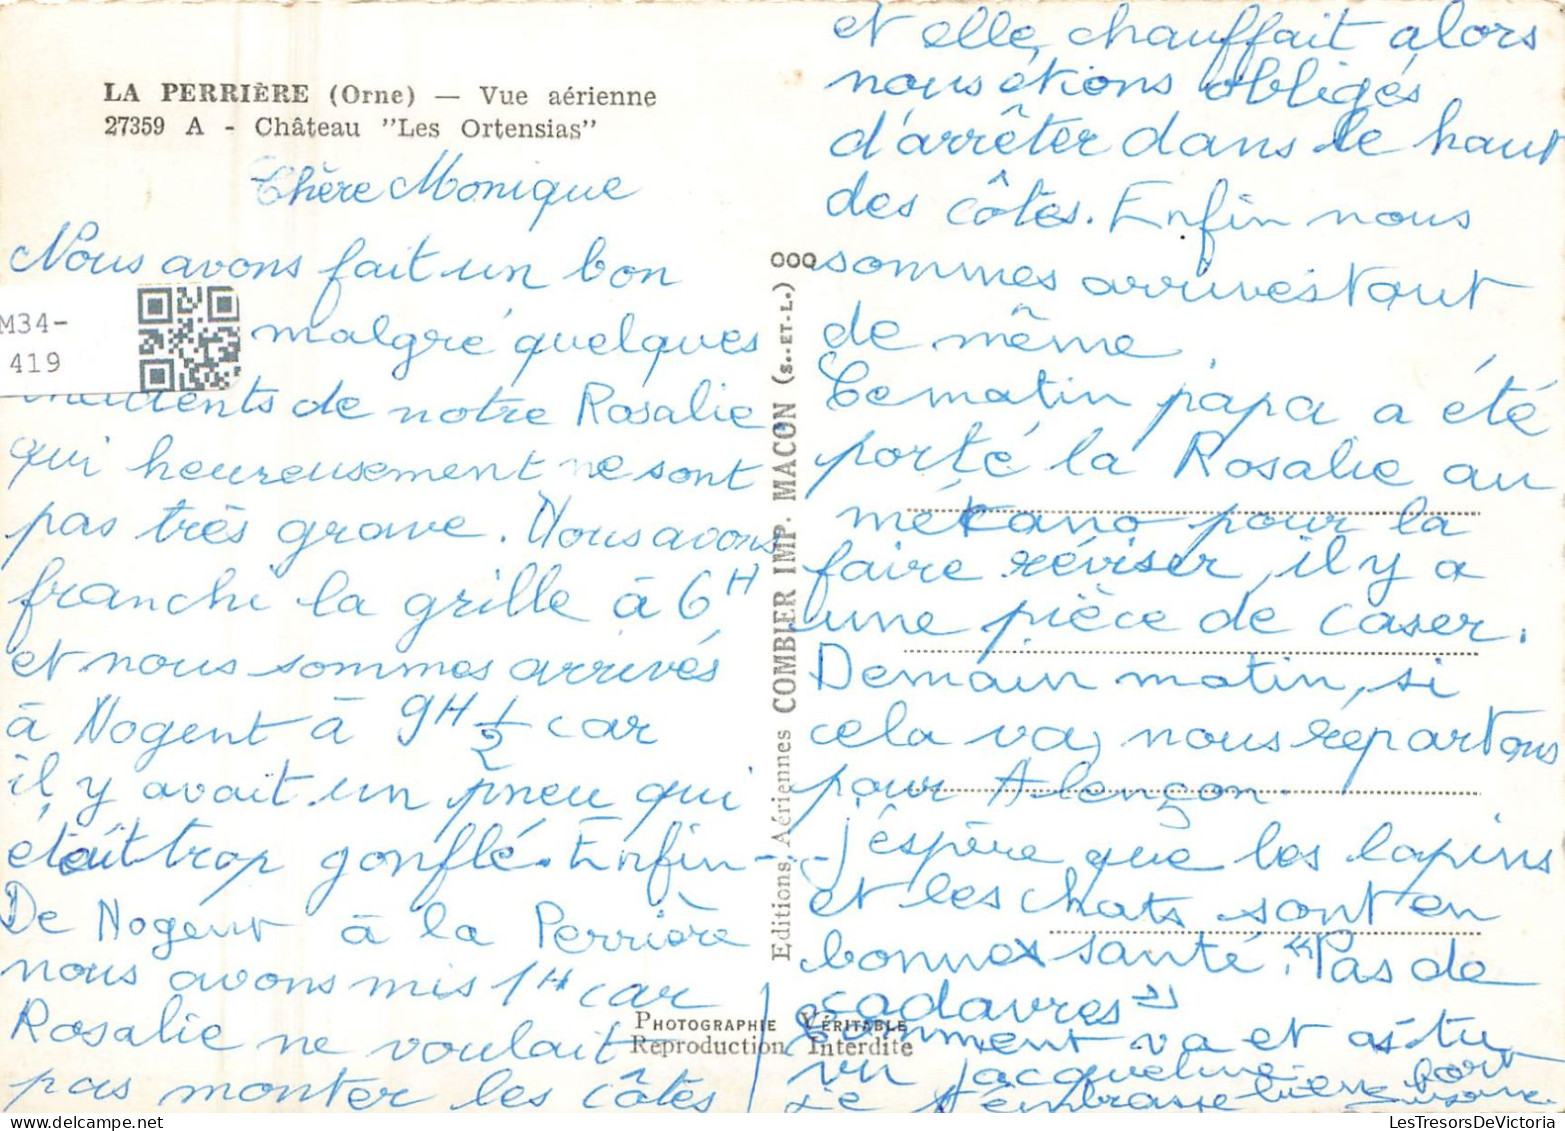 LA PERRIÈRE (Orne) — Vue aérienne
27359 A - Château "Les Ortensias"
Chère Monique
Nous avons fait un bon
malgré quelques
incidents de notre Rosalie
qui heureusement ne sont
pas très grave. Nous avons
franchi la grille à 6H
et nous sommes arrivés
à Nogent à 9H 1/2 car
il y avait un pneu qui
était trop gonflé. Enfin
De Nogent à la Perrière
nous avons mis 1H car
Rosalie ne voulait
pas monter les côtes
M34-
419
Editions Aériennes COMBIER IMP. MACON (S.-ET-L.) OOO
PHOTOGRAPHIE VÉRITABLE
Reproduction Interdite
et elle chauffait alors
nous étions obligés
d'arrêter dans le haut
des côtes. Enfin nous
sommes arrivés tout
de même
Ce matin papa a été
porté la Rosalie au
mécano pour la
faire réviser, il y a
une pièce de caser.
Demain matin, si
cela va, nous répartons
pour Alençon.
J'éspère que les lapins
et les chats sont en
bonne santé. "Pas de
cadavres"
Comment va et as-tu
vu Jacqueline
Je t'embrasse bien fort
LesTresorsDeVictoria.com